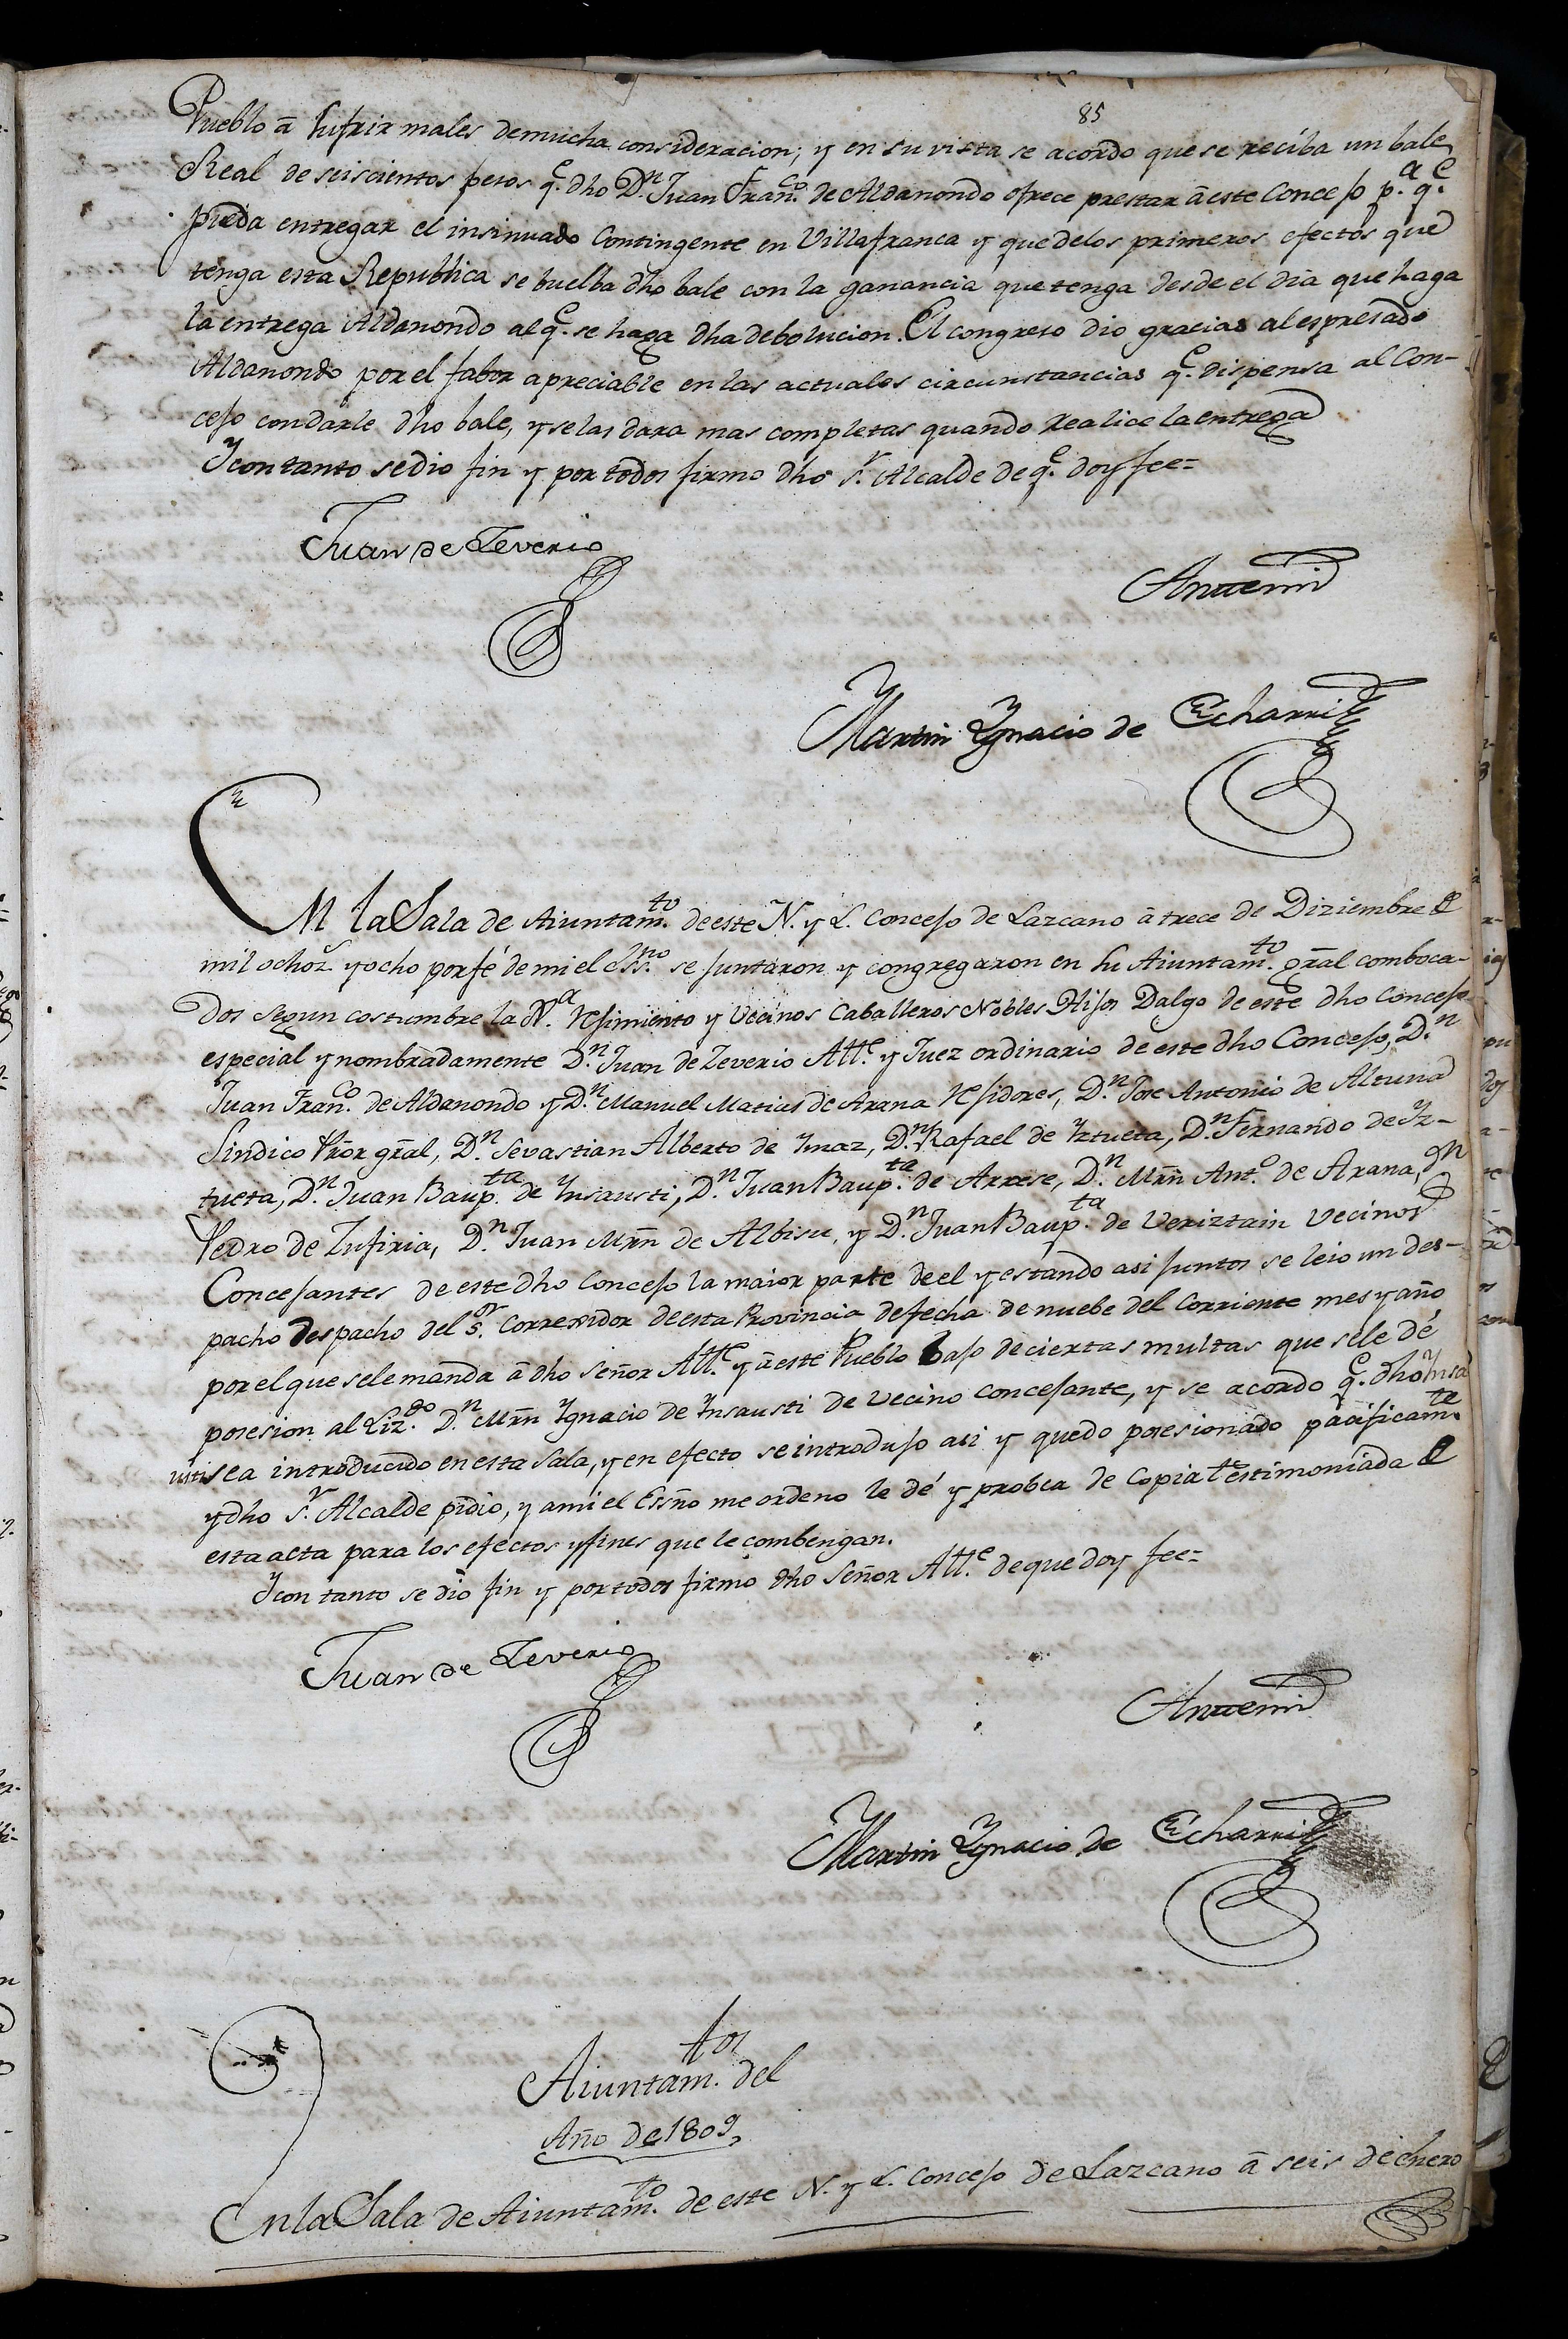 85
Pueblo a sufrir males de mucha consideracion; y en su vista se acordo que se reciba un bale
Real de seiscientos pesos q.e dho D.n Juan Fran.co de Aldanondo ofrece prestar a este Concejo p.a q.e
pueda entregar el insinuado Contingente en Villafranca y que de los primeros efectos que
tenga esta Republica se buelba dho bale con la ganancia que tenga desde el dia que haga
la entrega Aldanondo al q.e se haga dha debolucion. El congreso dio gracias al espresado
Aldanondo por el fabor apreciable en las actuales circunstancias q.e dispensa al Con-
cejo con darle dho bale, y se las dara mas completas quando realice la entrega
Y con tanto se dio fin y por todos firmo dho s.r Alcalde de q.e doy fee=
Juan de Zeverio
Ante mi
Martin Ygnacio de Echarri
En la Sala de Aiuntam.to de este N. y L. Concejo de Lazcano a trece de Diziembre de
mil ochoz.s y ocho por fé de mi el Ess.no se juntaron y congregaron en su Aiuntam.to gral comboca-
dos segun costumbre la Jus.a rejimiento y Vecinos Caballeros Nobles Hijos Dalgo de este dho Concejo
especial y nombradamente D.n Juan de Zeverio Alt.e y Juez ordinario de este dho Concejo, D.n
Juan Fran.co de Aldanondo y D.n Manuel Matias de Arana rejidores, D.n Jose Antonio de Altuna
Sindico Pror gral, D.n Sevastian Alberto de Ymaz, D.n Rafael de Yztueta, D.n Fernando de Yz-
tueta, D.n Juan Baup.ta de Ynsausti, D.n Juan Baup.ta de Arrese, D.n Mrn Ant.o de Arana, D.n
Pedro de Zufiria, D.n Juan Mrn de Albisu, y D.n Juan Baup.ta de Veriztain Vecinos
Concejantes de este dho Concejo la maior parte de el y estando asi juntos se leio un des-
pacho despacho del s.or Corregidor de esta Provincia de fecha de nuebe del Corriente mes y año
por el que se le manda a dho Señor Alt.e y a este Pueblo bajo de ciertas multas que se le dé
posesion al Liz.do D.n Mrn Ygnacio de Ynsausti de Vecino Concejante, y se acordo q.e dho Ynsa
usti sea introducido en esta Sala, y en efecto se introdujo asi y quedo posesionado pacificam.te
y dho s.r Alcalde pidio, y a mi el Essno me ordeno le dé y probea de Copia testimoniada de
esta acta para los efectos y fines que le combengan.
Y con tanto se dio fin y por todos firmo dho Señor Alt.e de que doy fee=
Juan de Zeverio
Ante mi
Martin Ygnacio de Echarri
Aiuntam.tos del
Año de 1809
En la Sala de Aiuntam.to de este N. y L. Concejo de Lazcano a seis de Enero